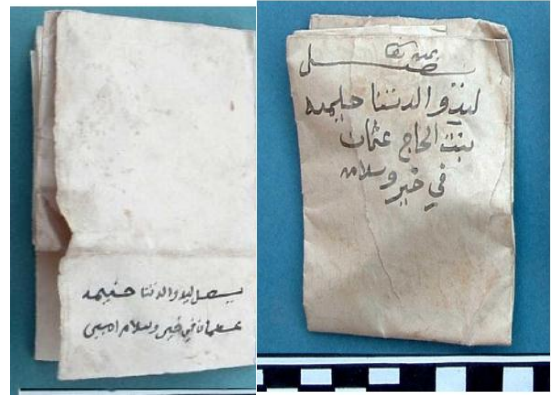 يصل ليد والدتنا حليمه
عثمان في خير وسلام امين
يصل
ليد والدتنا حليمه
بنت الحاج عثمان
في خير وسلام